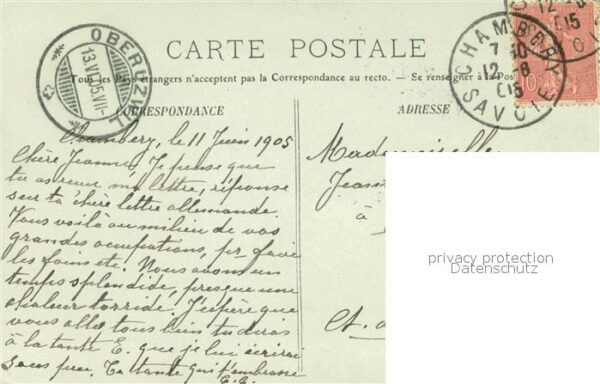 CARTE POSTALE
Tous les Pays étrangers n'acceptent pas la Correspondance au recto. — Se renseigner à la Pos
CORRESPONDANCE
ADRESSE
OBERUZWIL
13.VI.05.VII-
CHAMBERY
7 40
12 6
05
SAVOIE
12 6
05
Chambery, le 11 Juin 1905
Chère Jeanne, Je pense que
tu as reçu ma lettre, réponse
sur ta chère lettre allemande.
Vous voilà au milieu de vos
grandes occupations, pr faire
les foins etc. Nous avons un
temps splendide, presque une
chaleur torride. J'espère que
vous allez tous bien tu diras
à la tante E. que je lui écrirai
sous peu. Ta tante qui t'embrasse
E.E.
Mademoiselle
Jeann
à
Ct. d
privacy protection
Datenschutz